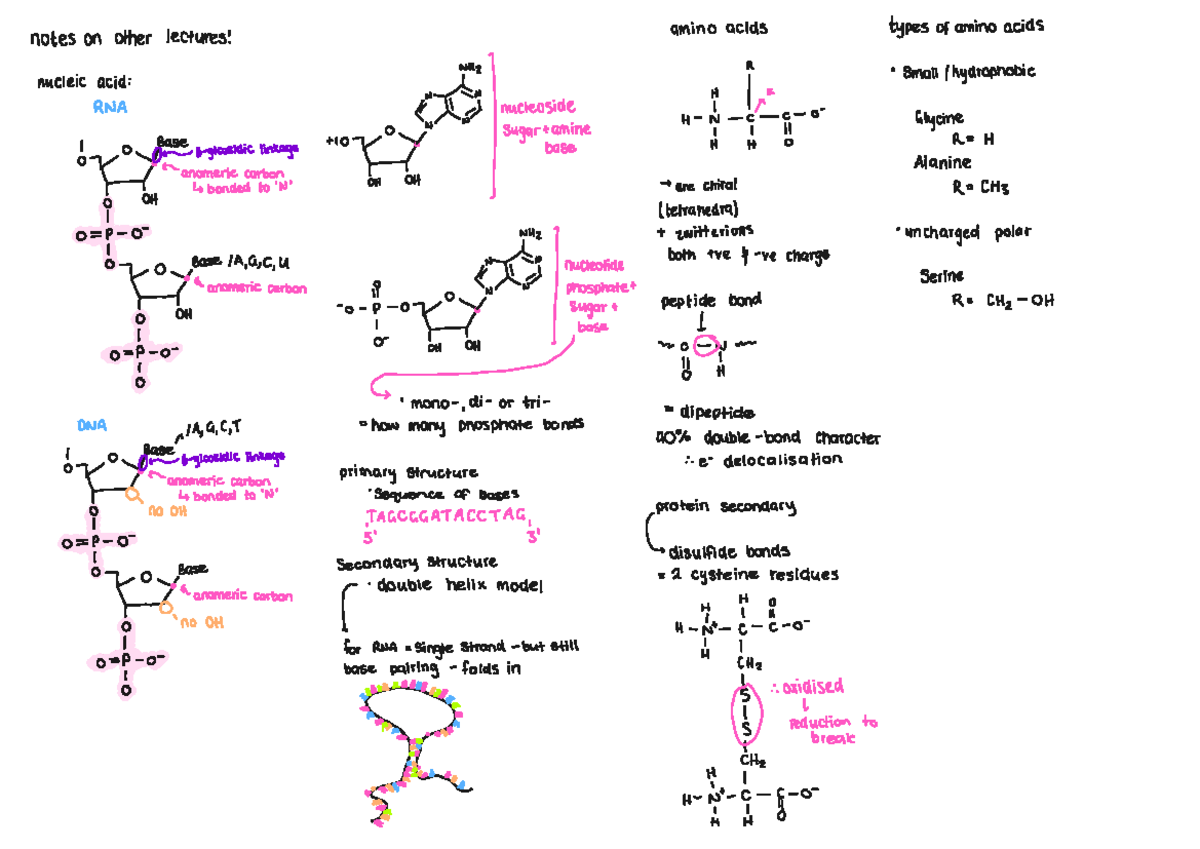 notes on other lectures!
nucleic acid:
RNA
Base
β-glocsidic linkage
anomeric carbon
↳ bonded to 'N'
OH
O=P-O⁻
Base /A,G,C,U
anomeric carbon
OH
O=P-O⁻
DNA
/A,G,C,T
Base
β-glocsidic linkage
anomeric carbon
↳ bonded to 'N'
no OH
O=P-O⁻
Base
anomeric carbon
no OH
O=P-O⁻
NH₂
HO
OH OH
nucleoside
sugar+amine
base
NH₂
⁻O-P-O
O⁻
OH OH
nucleotide
phosphate+
sugar+
base
• mono-, di- or tri-
= how many phosphate bonds
primary structure
• sequence of bases
TAGCGGATACCTAG
5' 3'
Secondary structure
• double helix model
for RNA = single strand - but still
base pairing - folds in
amino acids
R
H
H-N-C-C-O⁻
H H O
→ are chiral
(tetrahedra)
+ zwitterions
both +ve & -ve charge
peptide bond
C-N
O H
= dipeptide
40% double-bond character
∴ e⁻ delocalisation
protein secondary
disulfide bonds
= 2 cysteine residues
H H O
H-N⁺-C-C-O⁻
H CH₂
S
S
∴ oxidised
reduction to
break
CH₂
H
H-N⁺-C-C-O⁻
H H O
types of amino acids
• Small/hydrophobic
Glycine
R= H
Alanine
R= CH₃
• uncharged polar
Serine
R= CH₂-OH